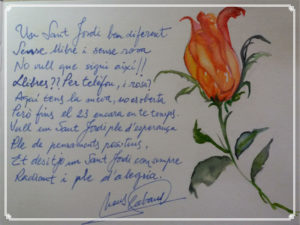 Un Sant Jordi ben diferent
Sense llibre i sense rosa
No vull que sigui així!!
Llibres?? Per telèfon, i rosa?
Aquí tens la meva, no es berta
Però fins el 23 encara en te temps.
Vull un Sant Jordi ple d'esperança
Ple de pensaments positius,
Et desitjo un Sant Jordi com sempre
Radiant i ple d'alegria.